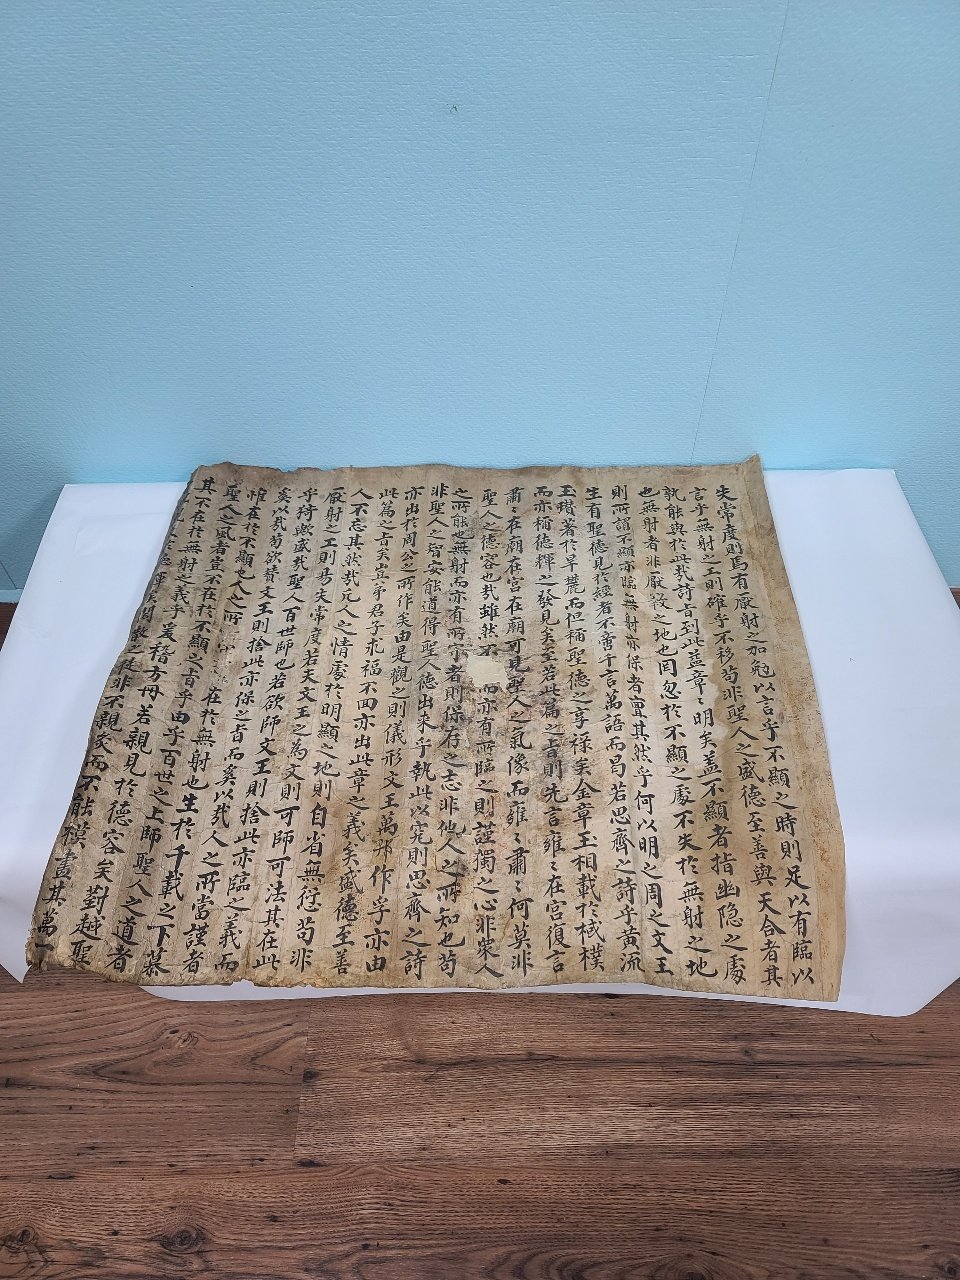 失常度則焉有厭射之加勉以言乎不顯之時則足以有臨以
言乎無射之上則確乎不移苟非聖人之盛德至善與天合者其
孰能與於此哉詩旨到此益章章明矣盖不顯者指幽隐之處
也無射者非厭斁之地也罔忽於不顯之處不失於無射之地
則所謂不顯亦臨無射亦保者實其然乎何以明之周之文王
生有聖德見於經者不啻千言萬語而曷若思齊之詩乎黃流
玉瓚著於旱麓而但稱聖德之享祿矣金章玉相載於棫樸
而亦稱德輝之發見矣至若此篇之旨則先言雍〻在宮復言
肅〻在廟在宮在廟可見聖人之氣像而雍〻肅〻何莫非
聖人之德容也哉雖然不 而亦有所臨之則謹獨之心非衆人
之所能也無射而亦有所守者則保存之志非他人之所知也苟
非聖人之智安能道得聖人德出来乎執此以究則思齊之詩
亦出於周公之所作矣由是觀之則儀形文王萬邦作孚亦由
此篇之旨矣豈弟君子求福不回亦出此章之義矣盛德至善
人不忘其然哉凡人之情處於明顯之地則自省無愆苟非
厭射之上則易失常度若夫文王之為文則可師可法其在此
乎猗歟盛哉聖人百世師也若欲師文王則捨此亦臨之義而
奚以哉苟欲贊文王則捨此亦保之旨而奚以哉人之所當謹者
惟在於不顯也人之所 在於無射也生於千載之下慕
聖人之風者豈不在於不顯之旨乎由乎百世之上師聖人之道者
其不在於無射之義乎爰稽方冊若親見於德容矣對越聖
之徒非不親炙而不能模畫其萬一